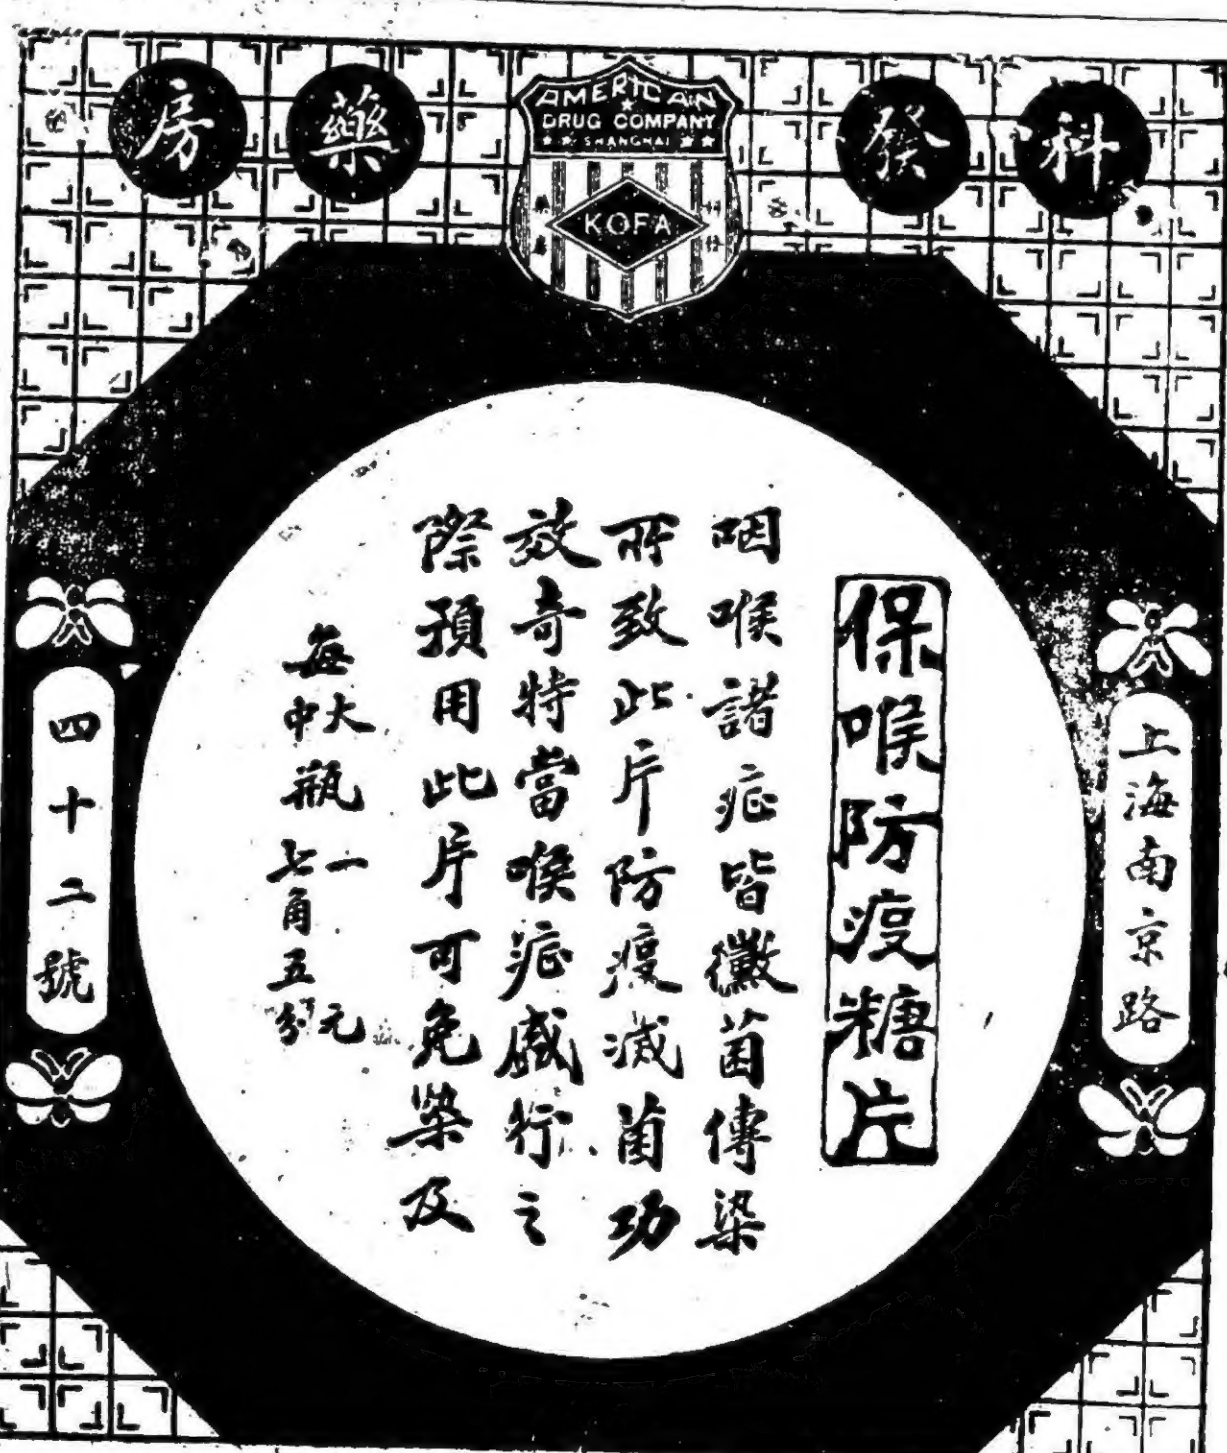 科發藥房
AMERICAN
DRUG COMPANY
SHANGHAI
KOFA
保喉防疫糖片
咽喉諸症皆黴菌傳染
所致此片防疫滅菌功
效奇特當喉症盛行之
際預用此片可免染及
每大瓶一元
中瓶七角五分
上海南京路
四十二號